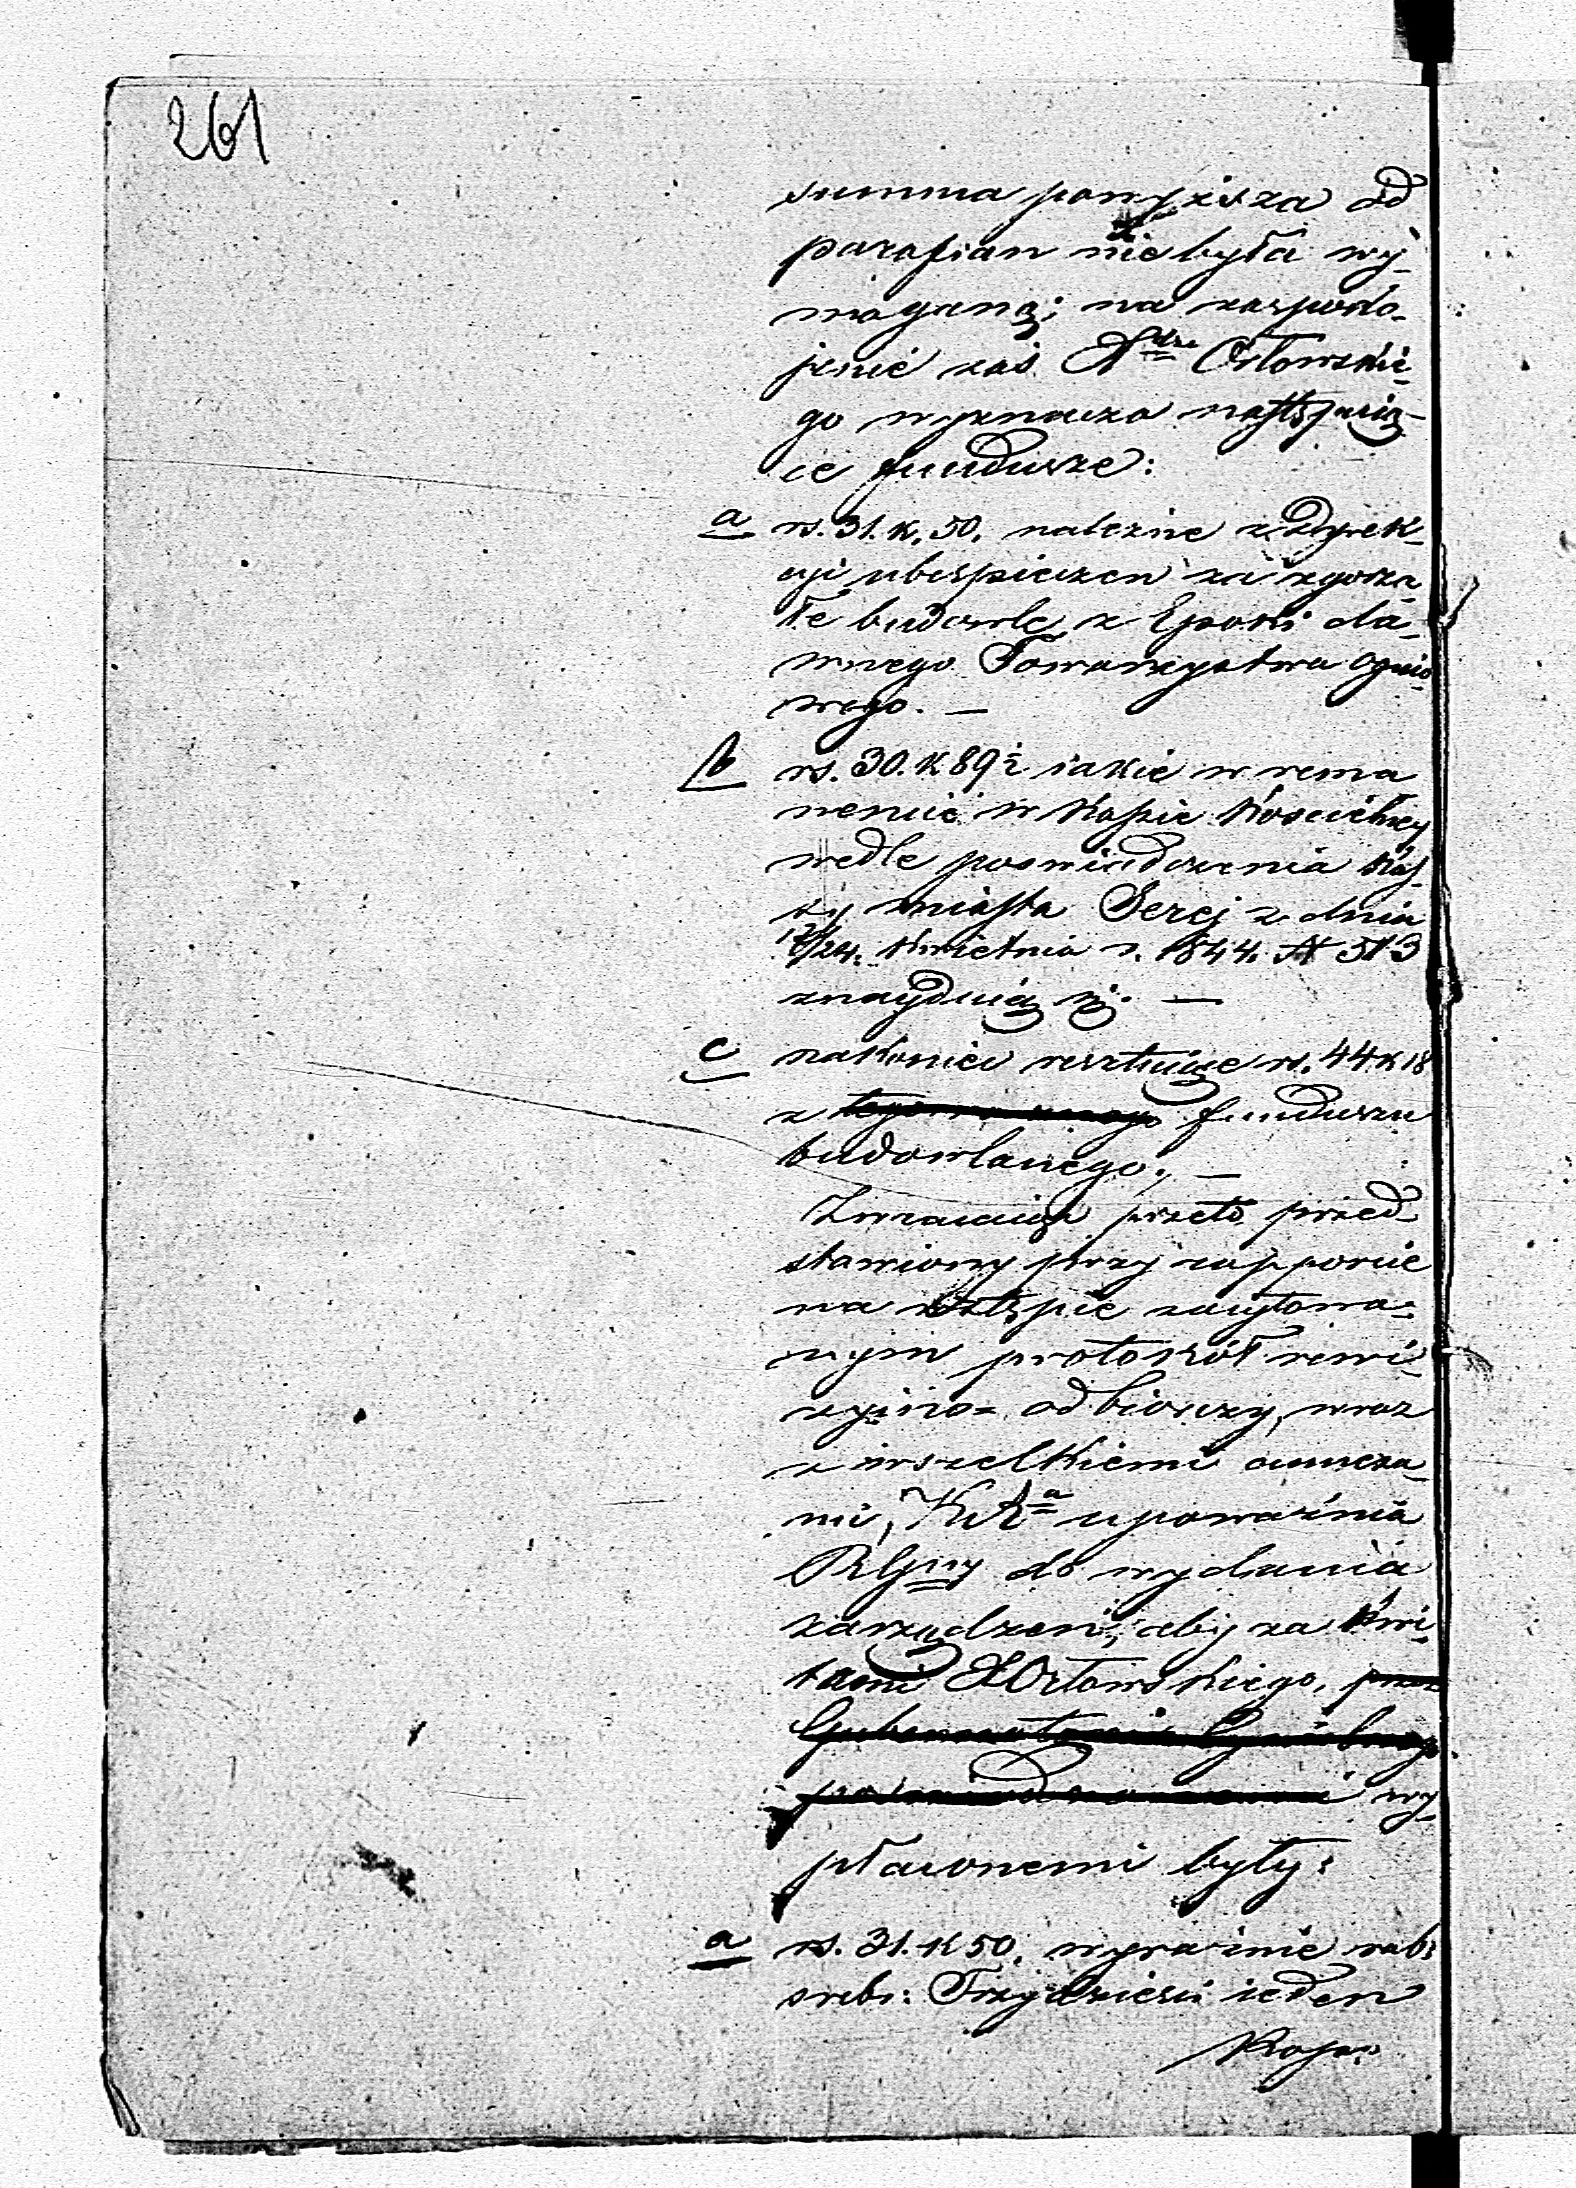 261
summa powyższa od
parafian nie była wy-
maganą; na zaspoko-
jenie zaś Orłowskie-
go wyznacza następuią-
ce fundusze:
a rs. 31. k. 50. należne z Dyrek-
cyi ubespieczeń za zgorza-
łe budowle z Epoki da-
wnego Towarzystwa Ognio-
wego. —
b rs. 30. k 89½ iakie w rema
nencie w Kassie Kościelney
wedle poswiadczenia Kas-
sy miasta Serej z dnia
12/24. Kwietnia r. 1844. N 513
znayduią się. —
c nakoniec resztuiące rs. 44 k 18
z funduszu
budowlanego. —
Zwracaiąc przeto przed-
stawiony przy rapporcie
na wstępie zacytowa-
nym protokół rewi-
zyino-odbiorczy, wraz
z wszelkiemi annexa-
mi, upoważnia
do wydania
zarządzeń, aby za kwi-
tami X Orłowskiego,
wy-
płaconemi były:
a rs. 31. k 50. wyraźnie rub:
srebr: Trzydzieści ieden
Kop: